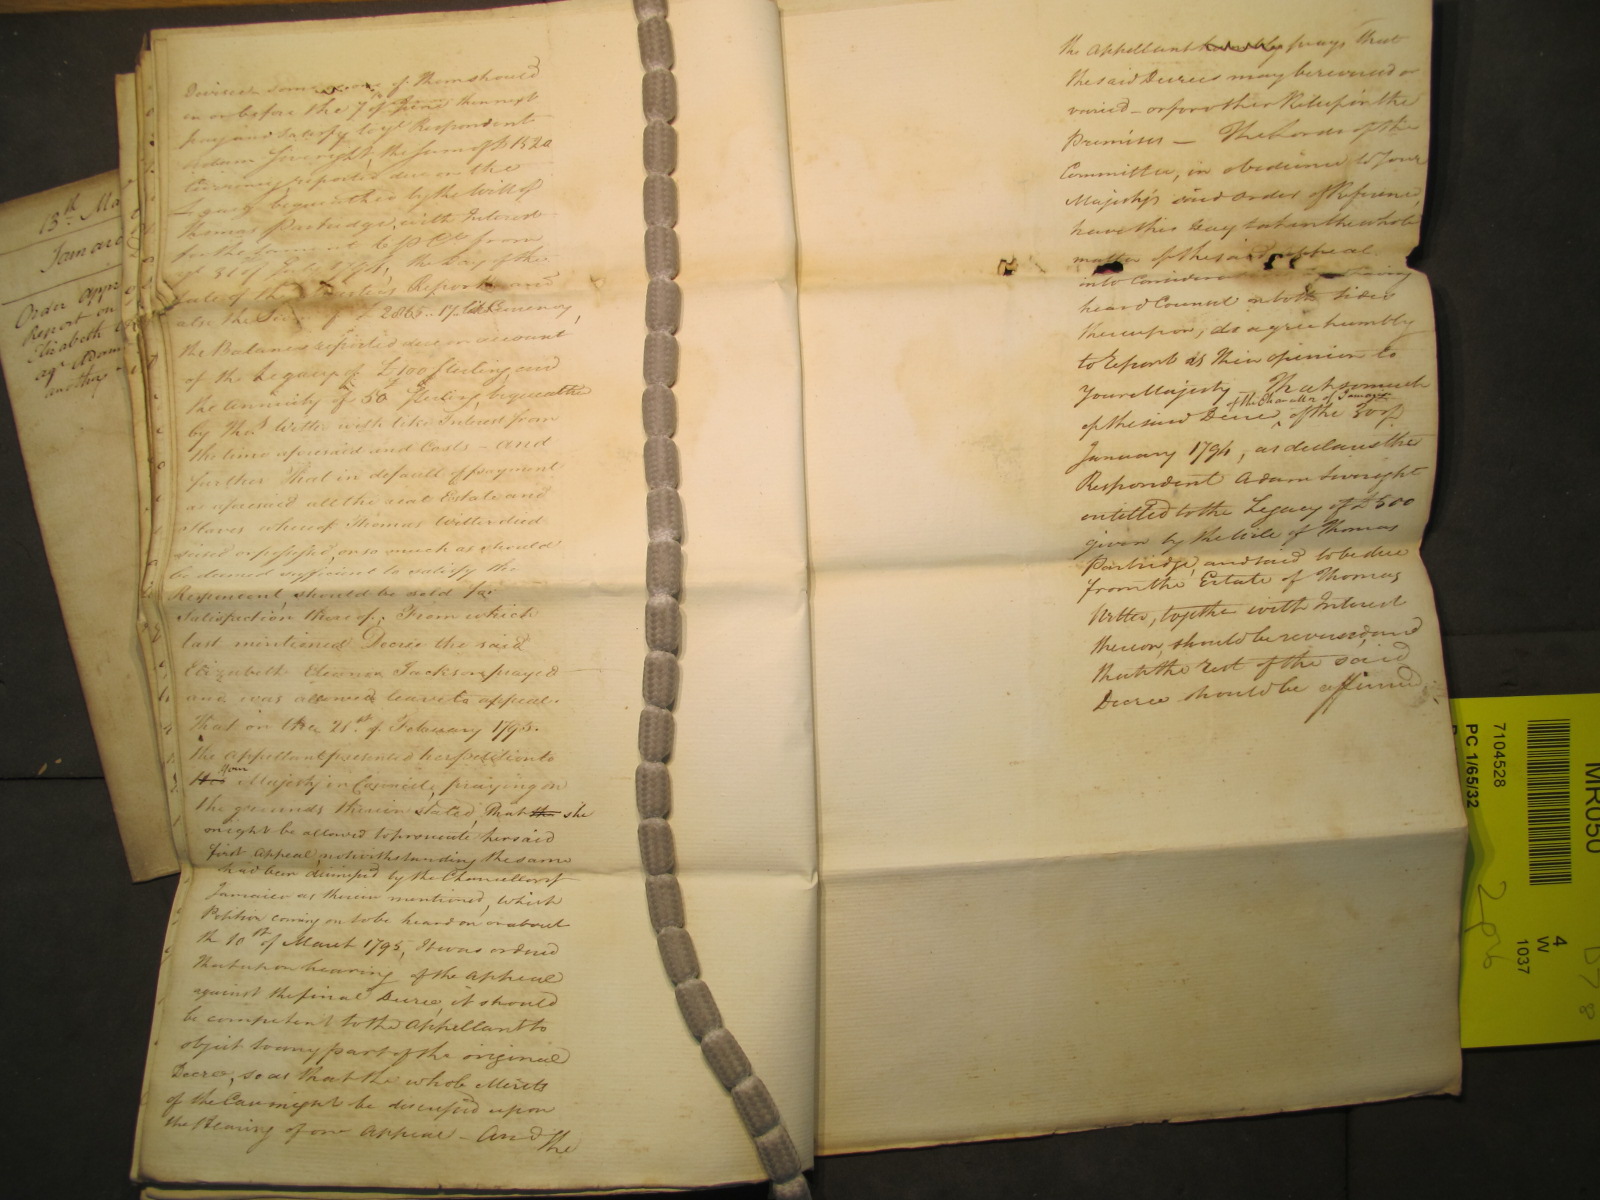 13th Ma
Jamaic
Order appr
Report on
Elizabeth
agt Adam
another
Devisees some or one of them should
on or before the 7 of June then next
pay and satisfy to ye Respondent
Adam Sivright, the Sum of £1520
Currency reported due on the
Legacy bequeathed by the Will of
Thomas Partridge, with Interest
for the same at 6 p Ct from
ye 31 of July 1794, the Day of the
date of the Masters Report and
also the Sum of £2865.. 17. Currency,
the Balance reported due on account
of the Legacy of £100 sterling and
the Annuity of £50 Sterling bequeathed
by Thos Witter with like Interest from
the time aforesaid and Costs - and
further That in default of payment
as aforesaid all the real Estate and
Slaves whereof Thomas Witter died
seised or possessed, or so much as should
be deemed sufficient to satisfy the
Respondent, should be sold for
Satisfaction thereof; From which
last mentioned Decree the said
Elizabeth Eleanor Jackson prayed
and was allowed leave to appeal.
That on the 21st of February 1795.
the appellant presented her petition to
His Your Majesty in Council, praying on
the grounds therein stated, That the she
might be allowed to prosecute her said
first Appeal, notwithstanding the same
had been dismissed by the Chancellor of
Jamaica as therein mentioned, which
Petition coming on to be heard on or about
the 10th of March 1795, It was ordered
that upon hearing of the Appeal
against the final Decree, it should
be competent to the Appellant to
object to any part of the original
Decree, so as that the whole Merits
of the Cause might be discussed upon
the Hearing of one Appeal - And the
the Appellant humbly prays that
the said Decrees may be reversed or
varied - or for other Relief in the
Premises - The Lords of the
Committee, in obedience to Your
Majesty's said Order of Reference,
have this Day taken the whole
matter of the said Appeal
into Consideration having
heard Council on both Sides
thereupon, do agree humbly
to Report as their opinion to
Your Majesty - That so much
of the Chancellor of Jamaica
of the said Decree, of the 30 of
January 1794, as declares the
Respondent Adam Sivright
entitled to the Legacy of £500
given by the Will of Thomas
Partridge, and said to be due
from the Estate of Thomas
Witter, together with Interest
thereon, should be reversed, and
that the rest of the said
Decree should be affirmed
MR050
7104528
PC 1/65/32
4
W
1037